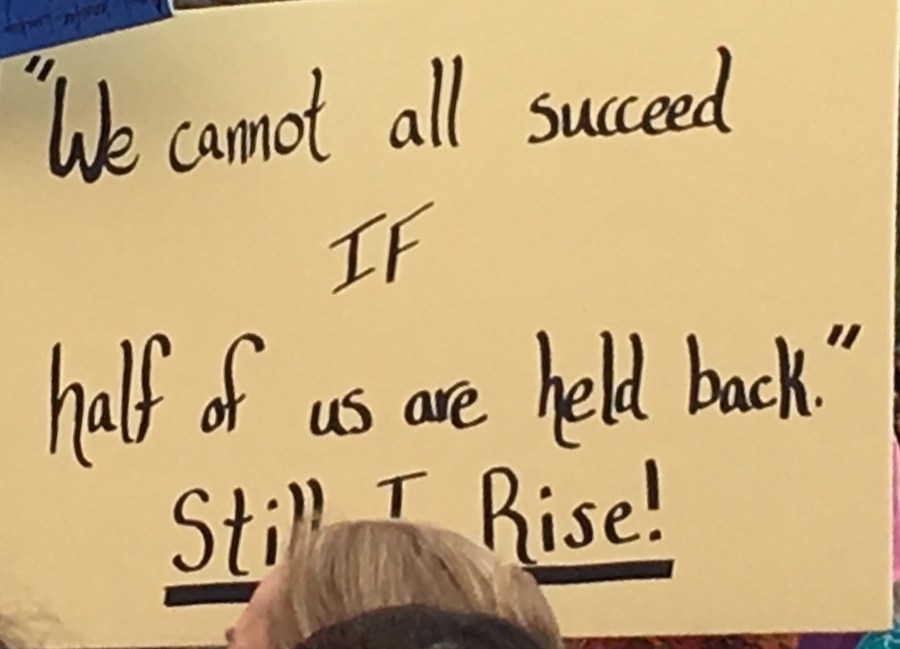 "We cannot all succeed
IF
half of us are held back."
Still I Rise!